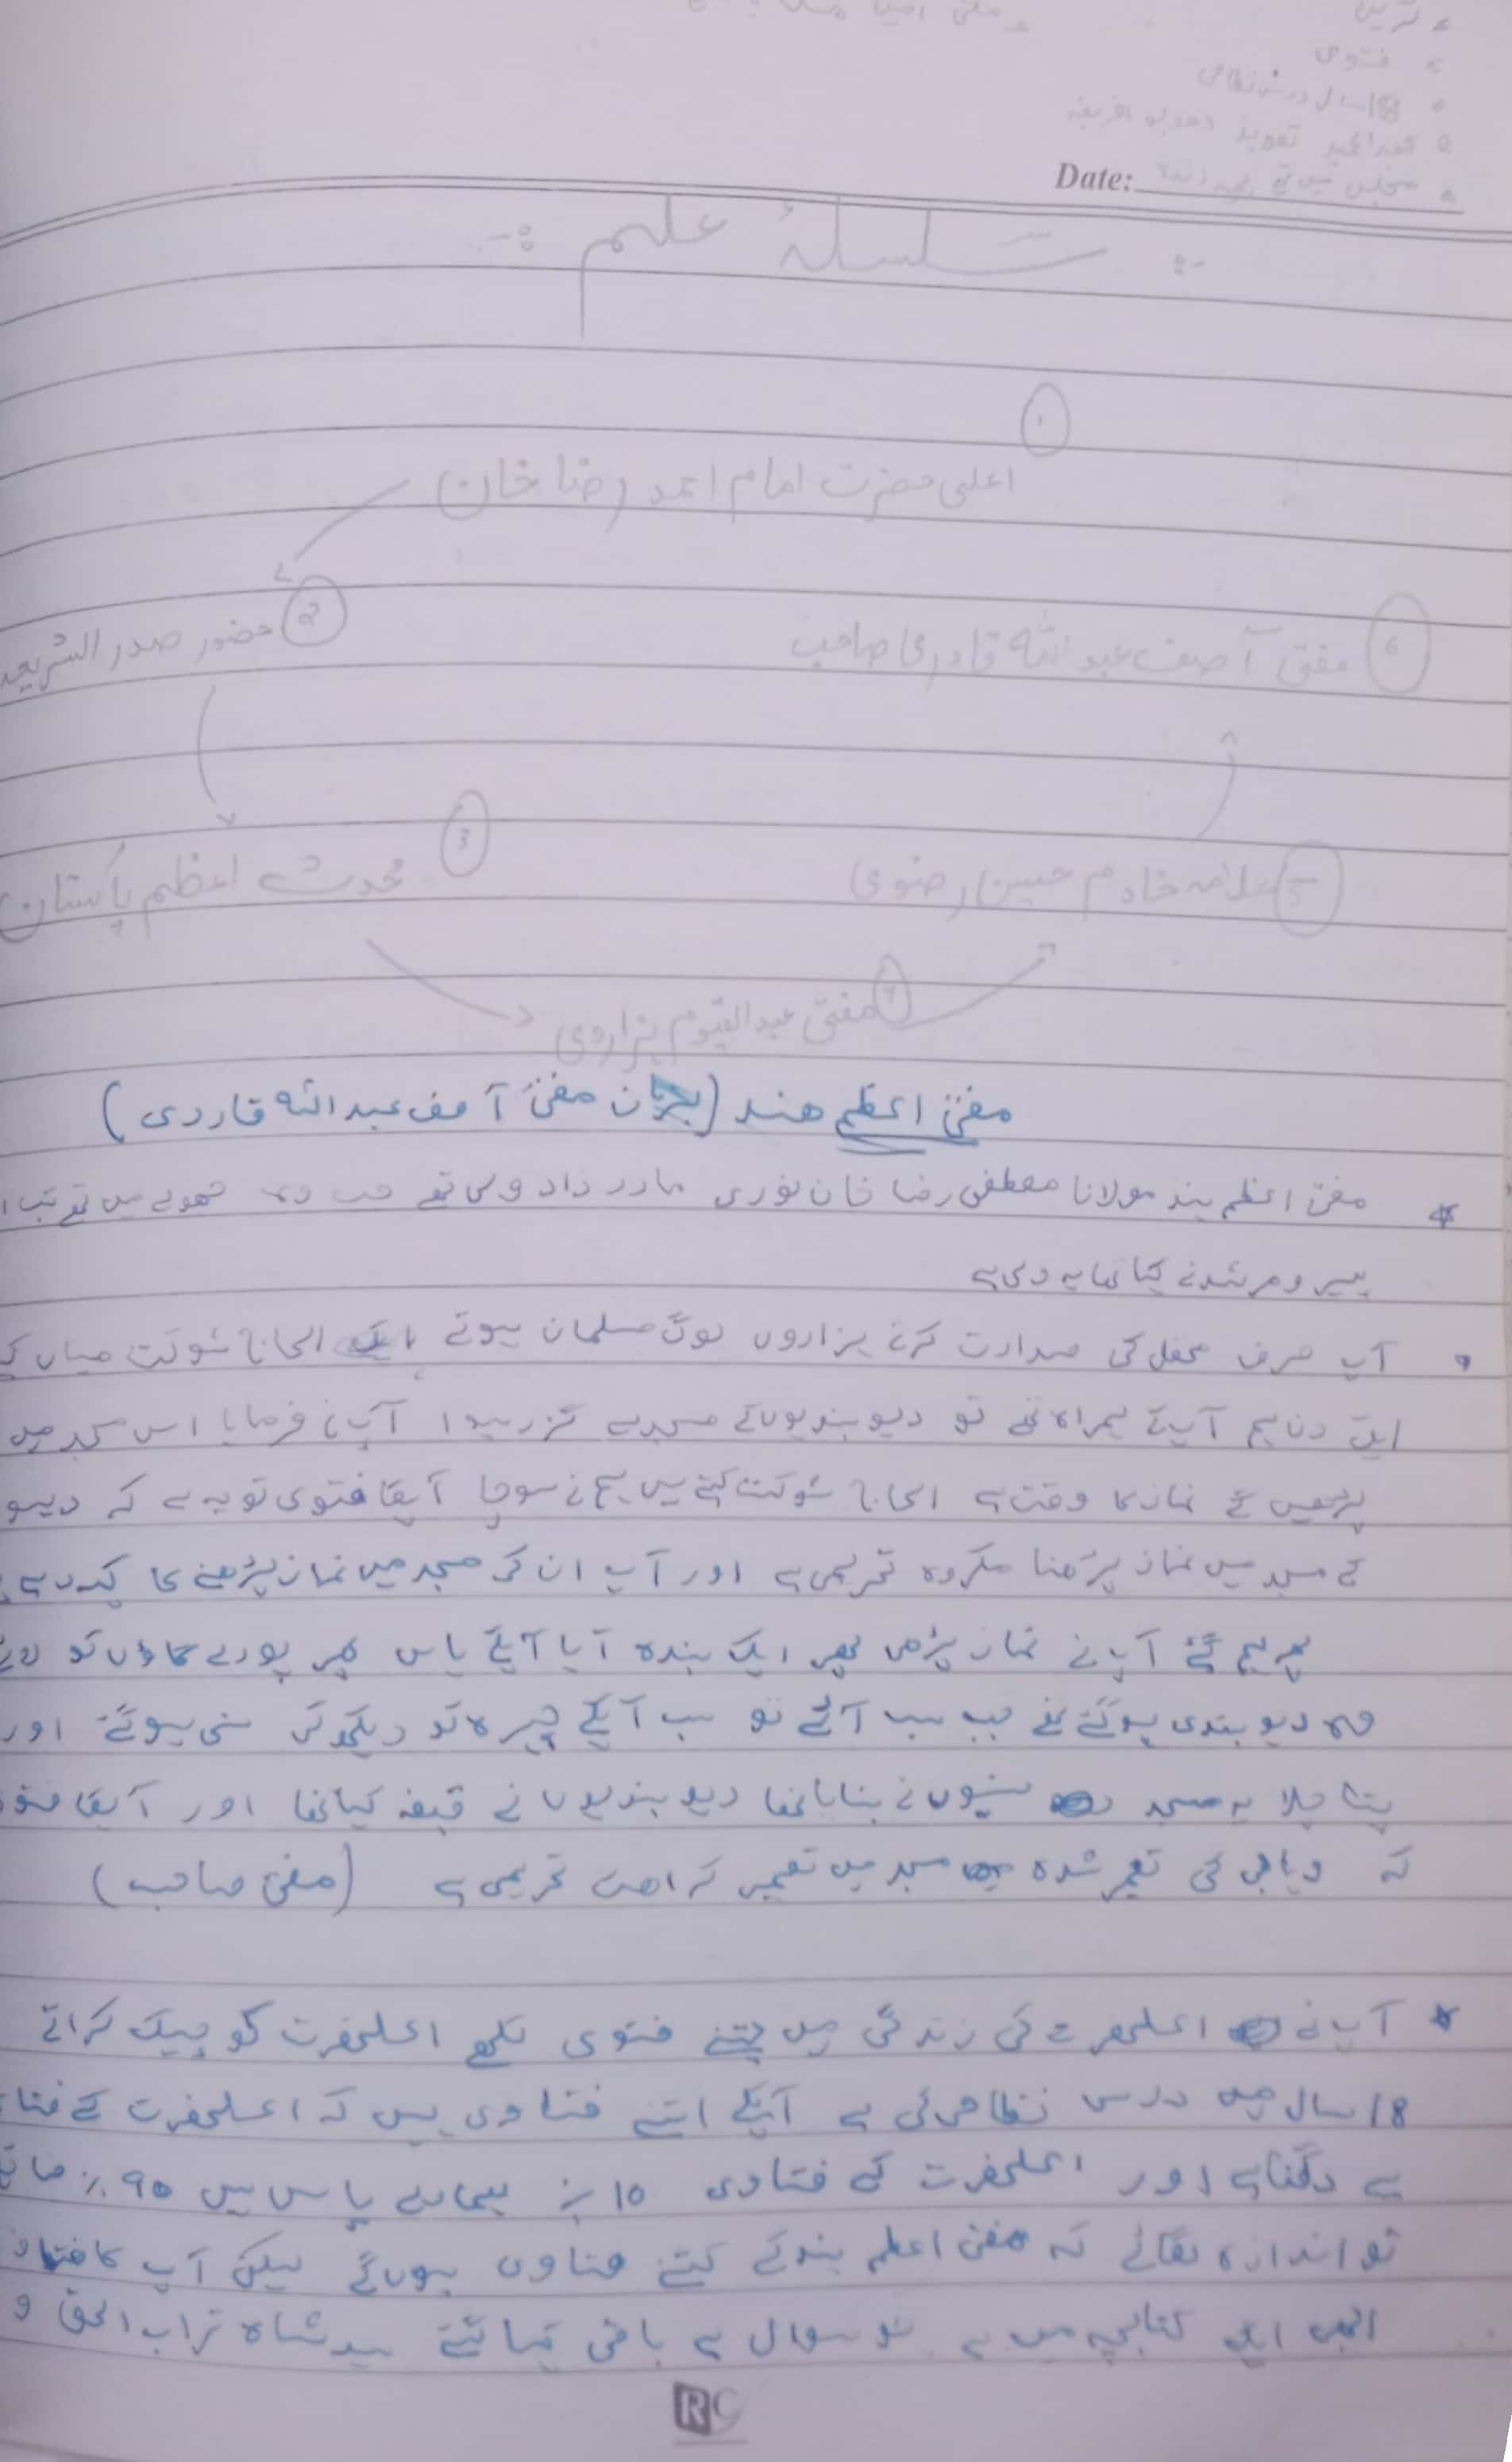 فتوی
18 سال درس نظامی
Date:
سلسلۂ علم
1
اعلی حضرت امام احمد رضا خان
2 حضور صدر الشریعہ
6 مفتی آصف عبد اللہ قادری صاحب
3 محدث اعظم پاکستان
5 علامہ خادم حسین رضوی
4 مفتی عبد القیوم ہزاروی
مفتی اعظم ھند (بزبان مفتی آصف عبد اللہ قادری)
* مفتی اعظم ہند مولانا مصطفی رضا خان نوری مادر زاد ولی تھے جب وہ جھولے میں تھے تب
پیر و مرشد نے کہا تھا یہ ولی ہے
آپ صرف محفل کی صدارت کرتے ہزاروں لوگ مسلمان ہوتے الحاج شوکت میاں
ایک دن ہم آپ کے ہمراہ تھے تو دیوبندیوں کے مسجد سے گزر ہوا آپ نے فرمایا اس مسجد میں
پڑھیں گے نماز کا وقت ہے الحاج شوکت کہتے ہیں ہم نے سوچا آپکا فتوی تو یہ ہے کہ دیو
کے مسجد میں نماز پڑھنا مکروہ تحریمی ہے اور آپ ان کی مسجد میں نماز پڑھنے کا کہہ رہے
پھر ہم گئے آپ نے نماز پڑھی پھر ایک بندہ آیا آپکے پاس پھر پورے گاؤں کو
وہ دیوبندی ہوگئے تھے جب سب آئے تو سب آپکے چہرہ کو دیکھ کر سنی ہوگئے اور
پتا چلا یہ مسجد سنیوں نے بنایا تھا دیوبندیوں نے قبضہ کیا تھا اور آپکا فتو
کہ وہابی کی تعمیر شدہ مسجد میں تعمیر کراھت تحریمی ہے (مفتی صاحب)
* آپ نے اعلحضرت کی زندگی میں جتنے فتوی لکھے اعلحضرت کو چیک کراتے
18 سال میں درس نظامی کی ہے آپکے اتنے فتاوی ہیں کہ اعلحضرت کے فتا
سے دگنا ہے اور اعلحضرت کے فتاوی 10 ٪ ہمارے پاس ہیں 90 ٪
تو اندازہ لگائے کہ مفتی اعظم ہند کے کتنے فتاوی ہوں گے لیکن آپ کا
ابھی ایک کتابچہ میں ہے تو سوال ہے باقی کہا گئے سید شاہ تراب الحق
RC